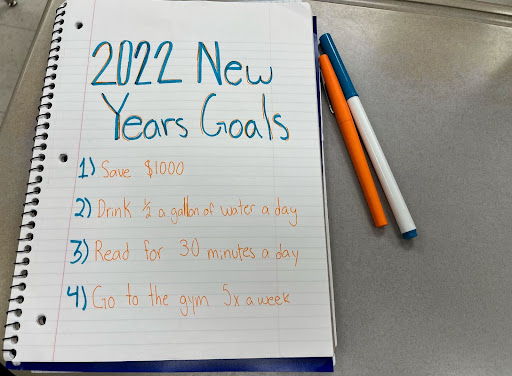 2022 New
Years Goals
1) Save $1000
2) Drink ½ a gallon of water a day
3) Read for 30 minutes a day
4) Go to the gym 5x a week